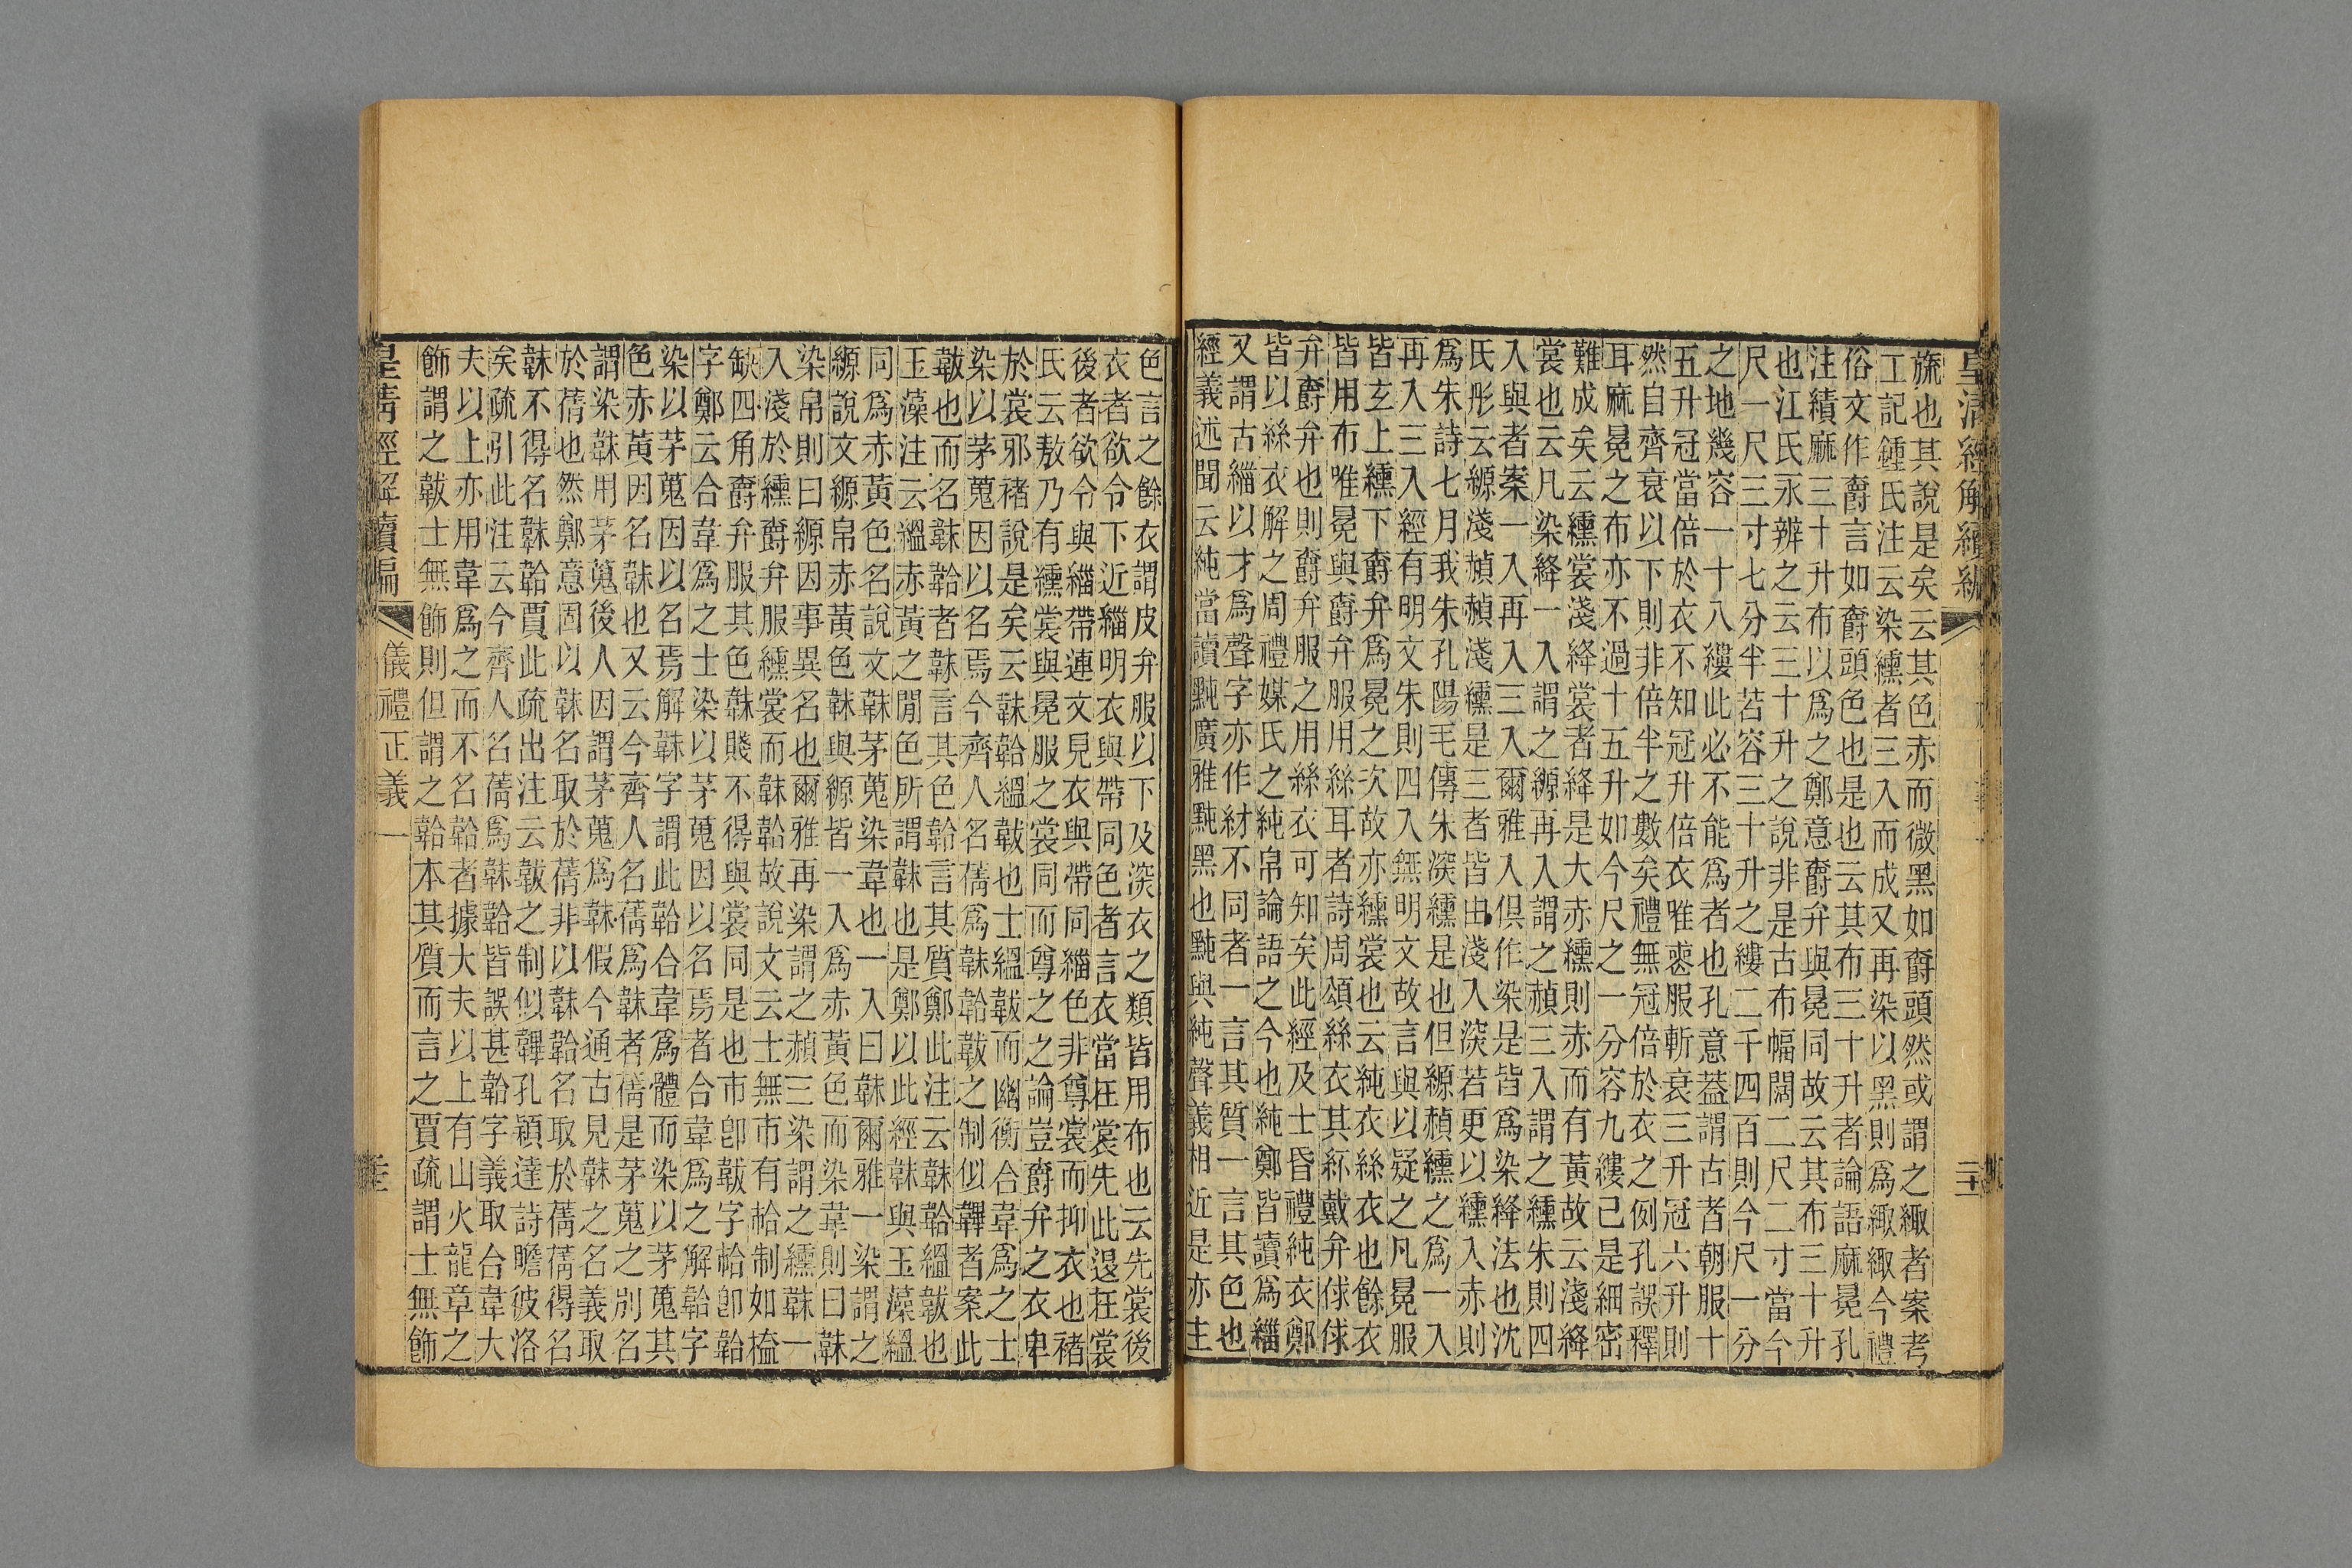 皇清經解續編
旒也其說是矣云其色赤而微黑如爵頭然或謂之緅者案考
工記鍾氏注云染纁者三入而成又再染以黑則爲緅緅今禮
俗文作爵言如爵頭色也是也云其布三十升者論語麻冕孔
注績麻三十升布以爲之鄭意爵弁與冕同故云其布三十升
也江氏永辨之云三十升之說非是古布幅闊二尺二寸當今
尺一尺三寸七分半若容三十升之縷二千四百則今尺一分
之地幾容一十八縷此必不能爲者也孔意葢謂古者朝服十
五升冠當倍於衣不知冠升倍衣唯喪服斬衰三升冠六升則
然自齊衰以下則非倍半之數矣禮無冠倍於衣之例孔誤釋
耳麻冕之布亦不過十五升如今尺之一分容九縷已是細密
難成矣云纁裳淺絳裳者絳是大赤纁則赤而有黃故云淺絳
裳也云凡染絳一入謂之縓再入謂之赬三入謂之纁朱則四
入與者案一入再入三入爾雅入俱作染是皆爲染絳法也沈
氏彤云縓淺赬赬淺纁是三者皆由淺入深若更以纁入赤則
爲朱詩七月我朱孔陽毛傳朱深纁是也但縓赬纁之爲一入
再入三入經有明文朱則四入無明文故言與以疑之凡冕服
皆玄上纁下爵弁爲冕之次故亦纁裳也云純衣絲衣也餘衣
皆用布唯冕與爵弁服用絲耳者詩周頌絲衣其紑戴弁俅俅
弁爵弁也則爵弁服之用絲衣可知矣此經及士昏禮純衣鄭
皆以絲衣解之周禮媒氏之純帛論語之今也純鄭皆讀爲緇
又謂古緇以才爲聲字亦作材不同者一言其質一言其色也
經義述聞云純當讀黗廣雅黗黑也黗與純聲義相近是亦主
色言之餘衣謂皮弁服以下及深衣之類皆用布也云先裳後
衣者欲令下近緇明衣與帶同色者言衣當在裳先此退在裳
後者欲令與緇帶連文見衣與帶同緇色非尊裳而抑衣也褚
氏云敖乃有纁裳與冕服之裳同而尊之之論豈爵弁之衣卑
於裳邪褚說是矣云韎韐縕韍也士縕韍而幽衡合韋爲之士
染以茅蒐因以名焉今齊人名蒨爲韎韐韍之制似韠者案此
韍也而名韎韐者韎言其色韐言其質鄭此注云韎韐縕韍也
玉藻注云縕赤黃之閒色所謂韎也是鄭以此經韎與玉藻縕
同爲赤黃色名說文韎茅蒐染韋也一入曰韎爾雅一染謂之
縓說文縓帛赤黃色韎與縓皆一入爲赤黃色而染韋則曰韎
染帛則曰縓因事異名也爾雅再染謂之赬三染謂之纁韎一
入淺於纁爵弁服纁裳而韎韐故說文云士無市有帢制如榼
缺四角爵弁服其色韎賤不得與裳同是也市卽韍字帢卽韐
字鄭云合韋爲之士染以茅蒐因以名焉者合韋爲之解韐字
染以茅蒐因以名焉解韎字謂此韐合韋爲體而染以茅蒐其
色赤黃因名韎也又云今齊人名蒨爲韎者蒨是茅蒐之別名
謂染韎用茅蒐後人因謂茅蒐爲韎假今通古見韎之名義取
於蒨也然鄭意固以韎名取於蒨非以韎韐名取於蒨蒨得名
韎不得名韎韐賈此疏出注云韍之制似韠孔穎達詩瞻彼洛
矣疏引此注云今齊人名蒨爲韎韐皆誤甚韐字義取合韋大
夫以上亦用韋爲之而不名韐者據大夫以上有山火龍章之
飾謂之韍士無飾則但謂之韐本其質而言之賈疏謂士無飾
皇清經解續編
儀禮正義一